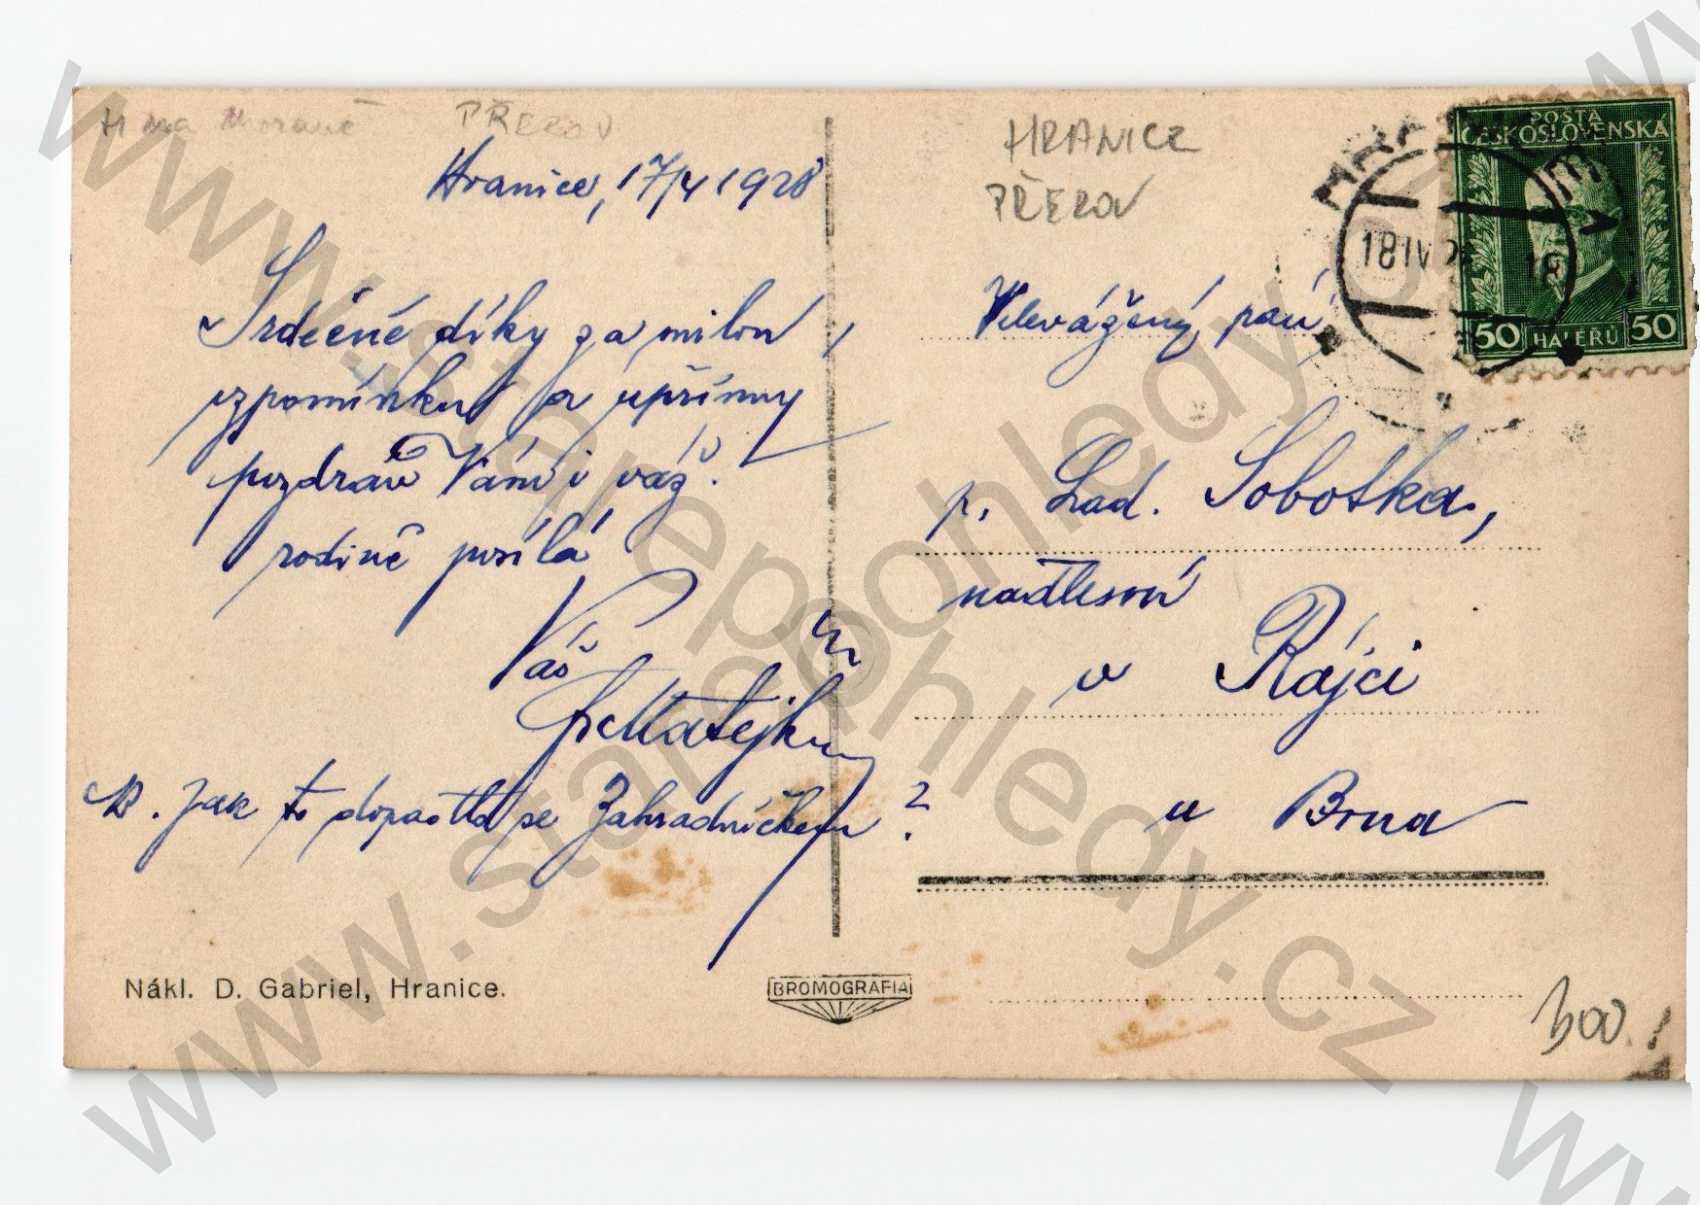 H na Moravě PŘEROV
Hranice, 17/4 1928
Srdečné díky za milou
vzpomínku a upřímný
pozdrav Vám i váž.
rodině posílá
Váš
Matějka
NB. Jak to dopadlo se Zahradníčkem?
Nákl. D. Gabriel, Hranice.
BROMOGRAFIA
HRANICE
PŘEROV
POŠTA
ČESKOSLOVENSKÁ
50 HALÉŘŮ 50
18 IV
Velevážený pán
p. Lad. Sobotka,
nadlesní
v Rájci
u Brna
300.!
www.starepohledy.cz
www.starepohledy.cz